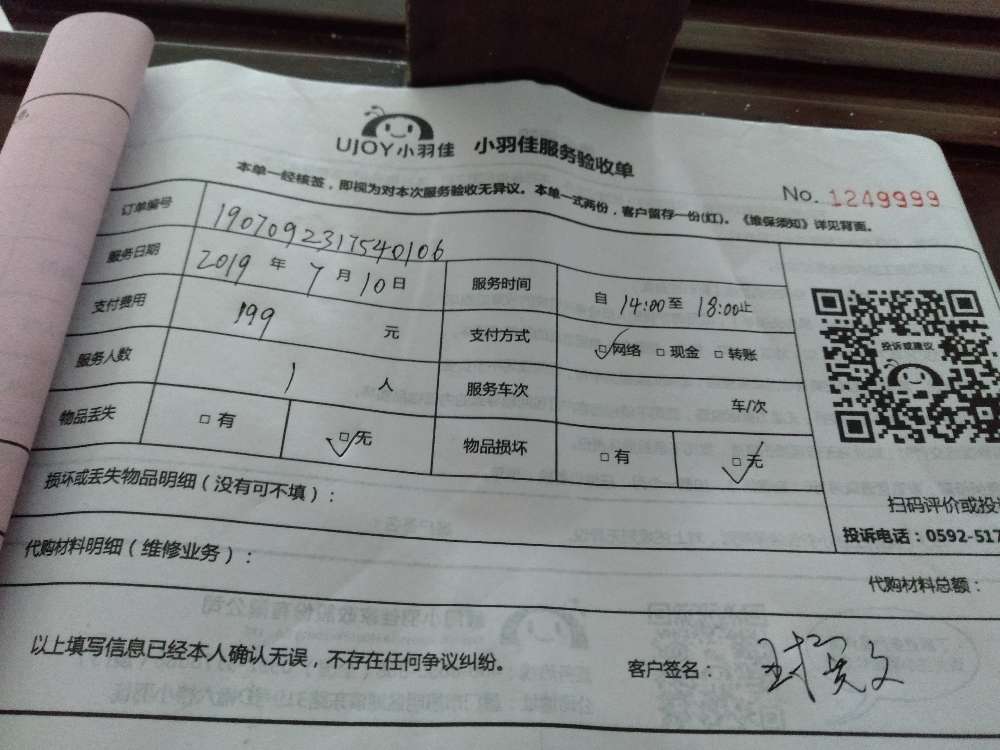 UJOY小羽佳 小羽佳服务验收单
No. 1249999
本单一经核签，即视为对本次服务验收无异议。本单一式两份，客户留存一份(红)。《维保须知》详见背面。
订单编号 1907092317540106
服务日期 2019 年 7 月 10 日 服务时间 自 14:00 至 18:00 止
支付费用 199 元 支付方式 □网络 □现金 □转账
服务人数 1 人 服务车次 车/次
物品丢失 □有 □无 物品损坏 □有 □无
投诉或建议
扫码评价或投
损坏或丢失物品明细（没有可不填）：
投诉电话：0592-517
代购材料明细（维修业务）：
代购材料总额：
以上填写信息已经本人确认无误，不存在任何争议纠纷。
客户签名：